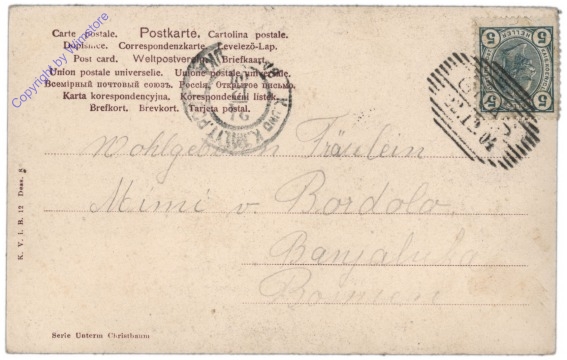 Carte postale. Postkarte. Cartolina postale.
Dopisnice. Correspondenzkarte. Levelező-Lap.
Post card. Weltpostverein. Briefkaart.
Union postale universelle. Unione postale universale.
Всемірный почтовый союзъ. Россія. Открытое письмо.
Karta korespondencyjna. Korespondenční listek.
Brefkort. Brevkort. Tarjeta postal.
Copyright by Winnetore
5 HELLER 5
5 5
Wohlgeboren Fräulein
Mimi v. Bordolo.
Banjaluka
Bosnien
K. V. i. B. 12 Dess.
Serie Unterm Christbaum